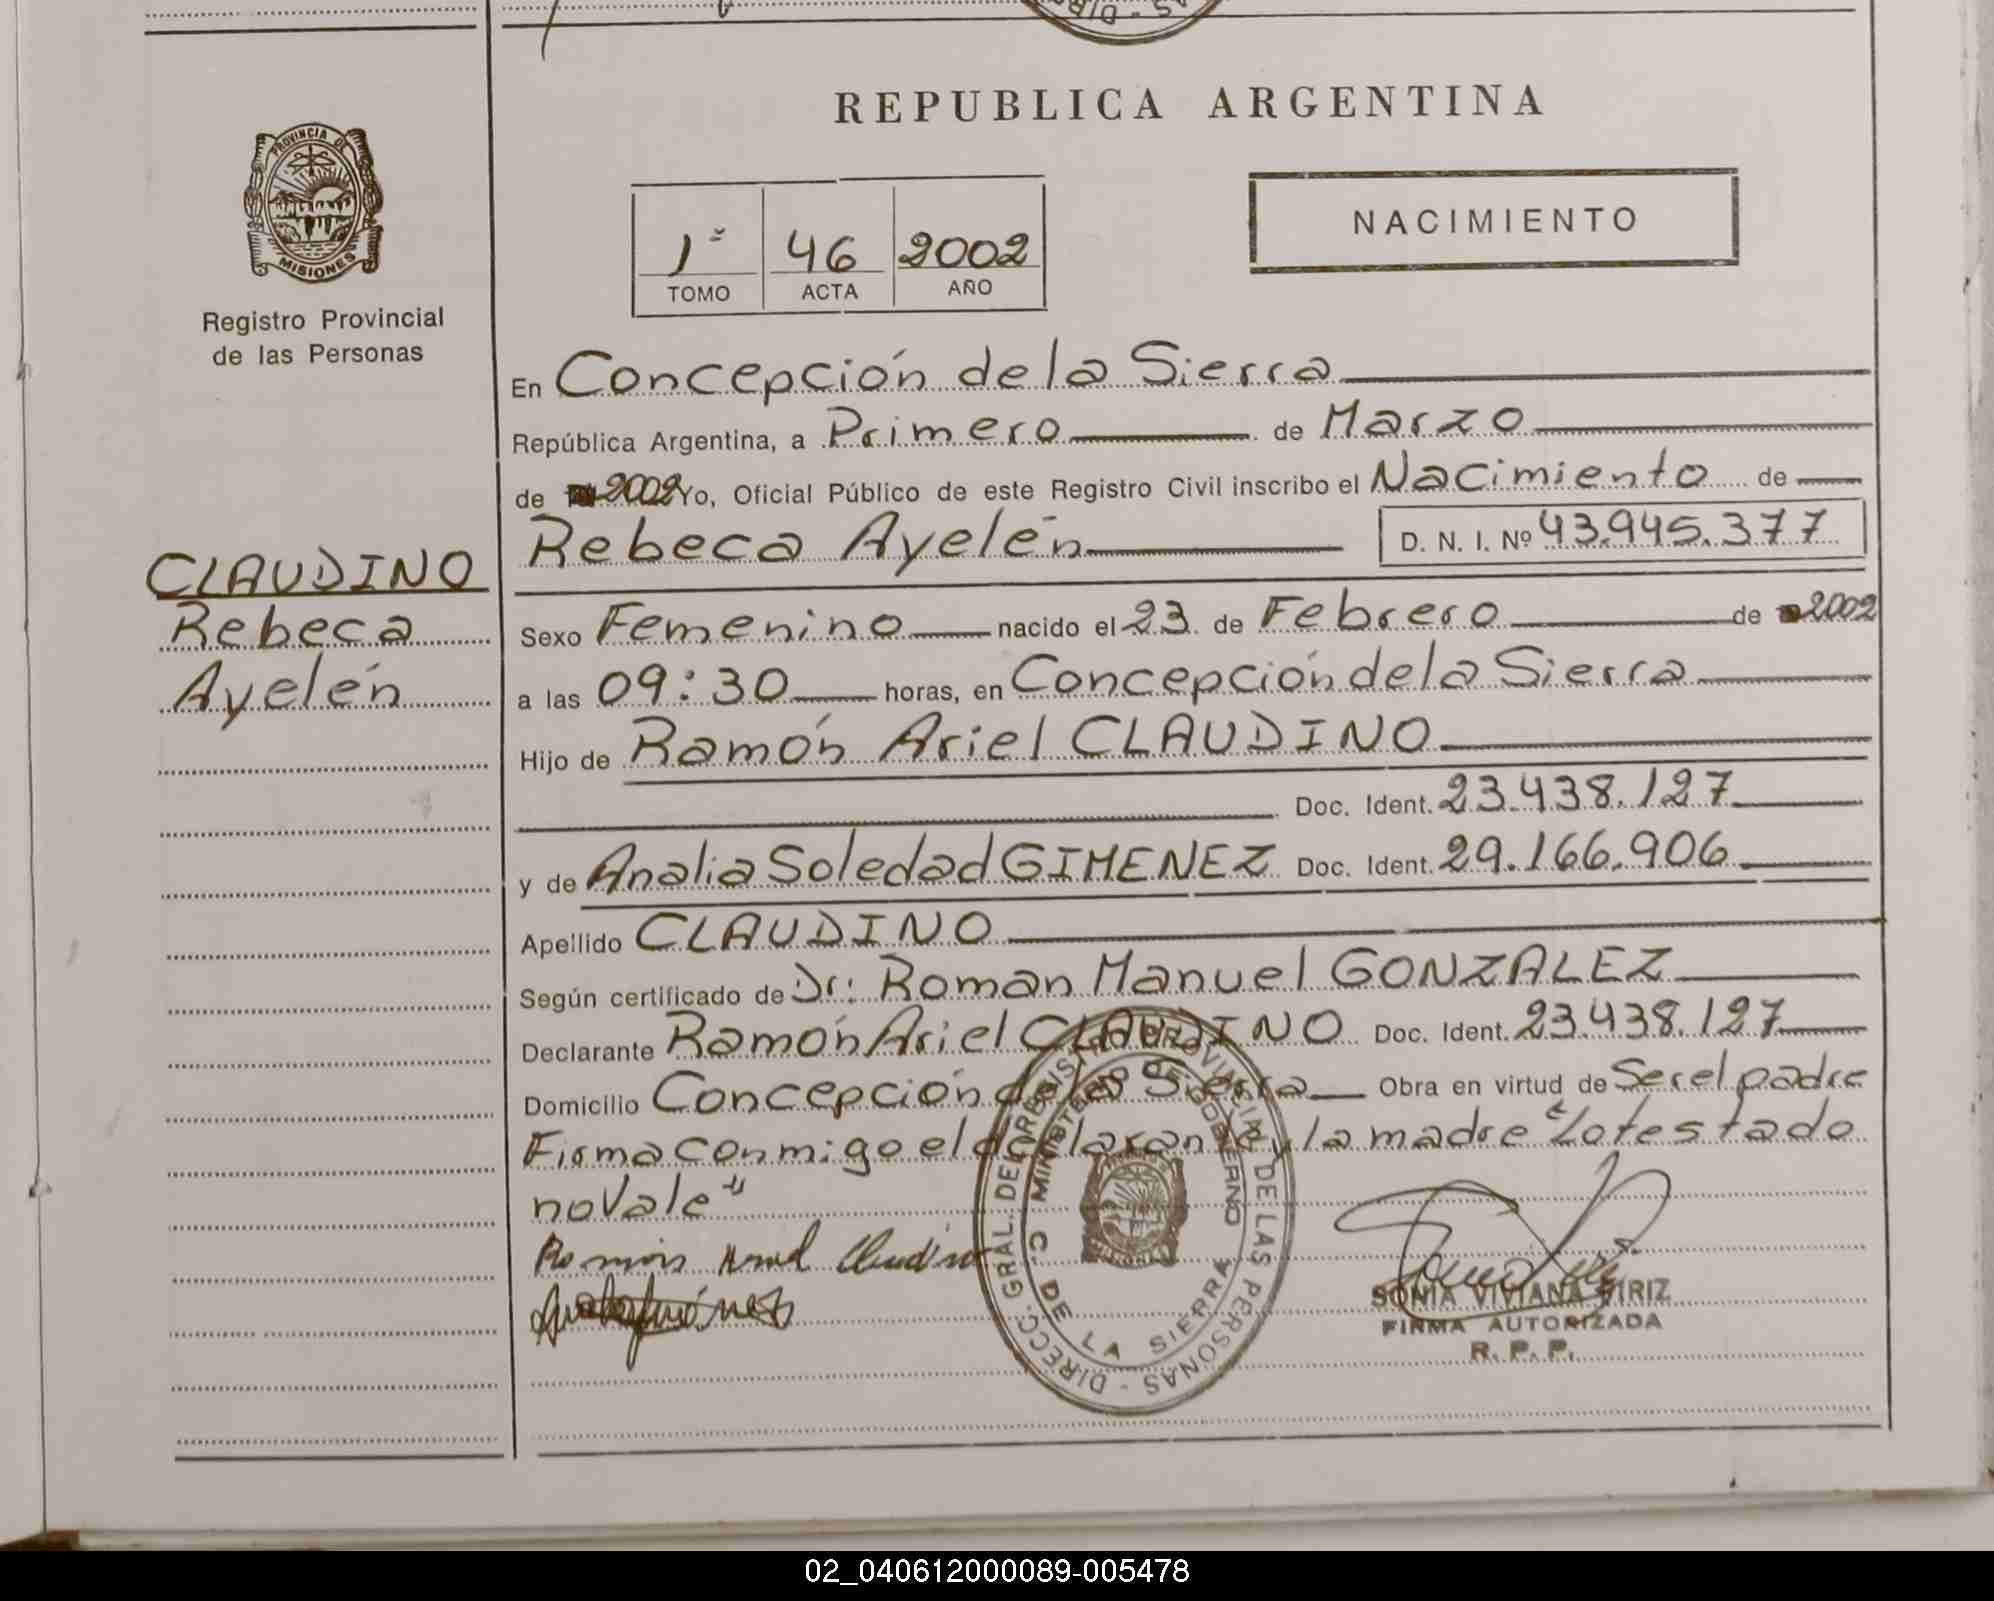 REPUBLICA ARGENTINA
PROVINCIA DE
MISIONES
Registro Provincial
de las Personas
1º 46 2002
TOMO ACTA AÑO
NACIMIENTO
En Concepción de la Sierra
República Argentina, a Primero de Marzo
de 2002 Yo, Oficial Público de este Registro Civil inscribo el Nacimiento de
Rebeca Ayelén D. N. I. Nº 43.945.377
CLAUDINO
Rebeca
Ayelén
Sexo Femenino nacido el 23 de Febrero de 2002
a las 09:30 horas, en Concepción de la Sierra
Hijo de Ramón Ariel CLAUDINO
Doc. Ident. 23.438.127
y de Analia Soledad GIMENEZ Doc. Ident. 29.166.906
Apellido CLAUDINO
Según certificado de Dr: Roman Manuel GONZALEZ
Declarante Ramón Ariel CLAUDINO Doc. Ident. 23.438.127
Domicilio Concepción de la Sierra Obra en virtud de Ser el padre
Firma conmigo el declarante y la madre "Lo testado
no Vale"
DIRECC. GRAL. DEL REGISTRO PROVINCIAL DE LAS PERSONAS
MINISTERIO DE GOBIERNO
C. DE LA SIERRA
SONIA VIVIANA PIRIZ
FIRMA AUTORIZADA
R. P. P.
02_040612000089-005478